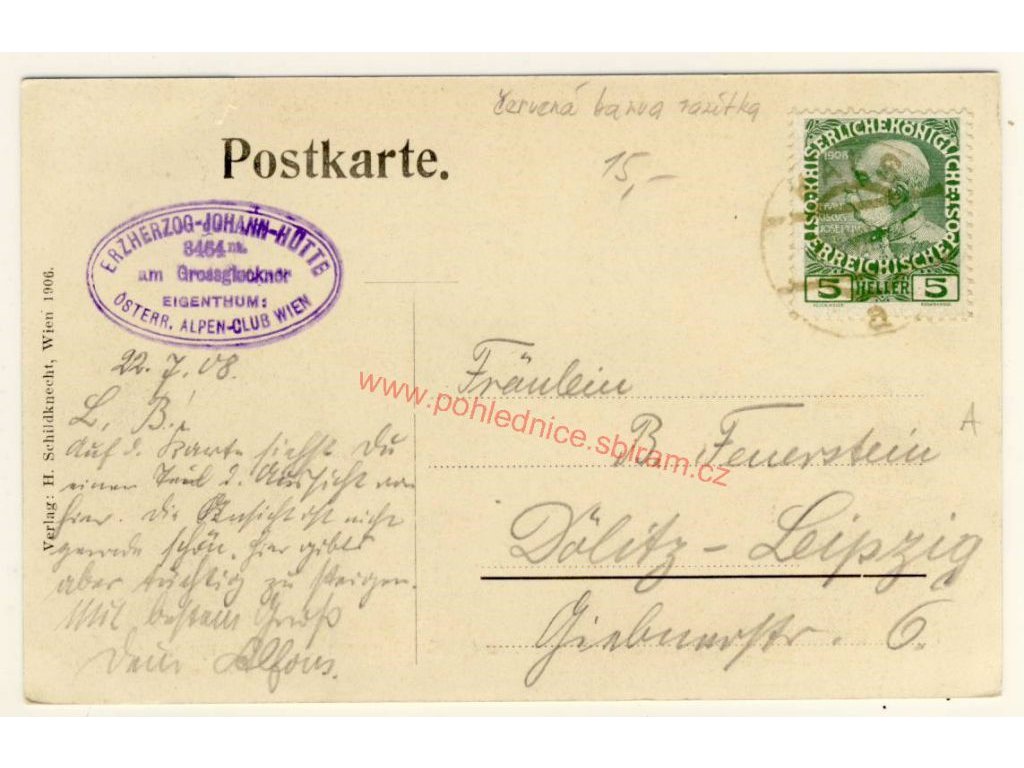 červená barva razítka
15,-
Postkarte.
KAISERLICHE KÖNIGLICHE
ÖSTERREICHISCHE POST
1908
5 HELLER 5
a
ERZHERZOG-JOHANN-HÜTTE
3464 m.
am Grossglockner
EIGENTHUM:
ÖSTERR. ALPEN-CLUB WIEN
Verlag: H. Schildknecht, Wien 1906.
22. 7. 08.
L. B.!
Auf d. Karte siehst Du
einen Teil d. Aussicht von
hier. Die Ansicht ist nicht
gerade schön. Hier gibts
aber tüchtig zu steigen.
Mit bestem Gruß
Dein Alfons.
Fräulein
B. Feuerstein
Dölitz - Leipzig
Giebnerstr. 6.
A
www.pohlednice.sbiram.cz